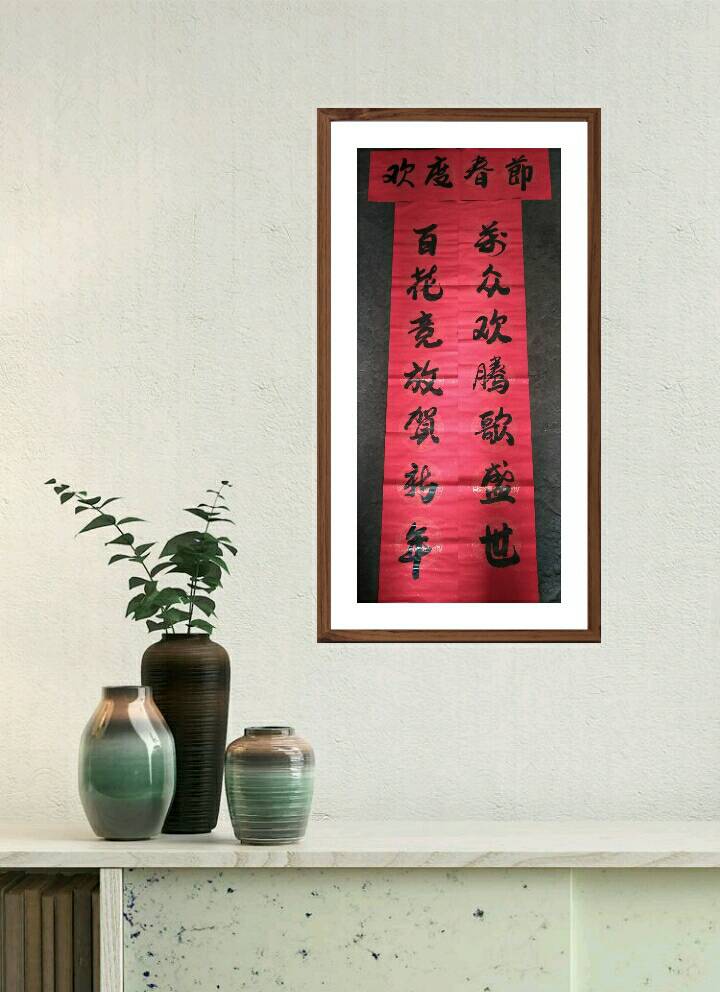 欢度春節
万众欢腾歌盛世
百花竞放贺新年